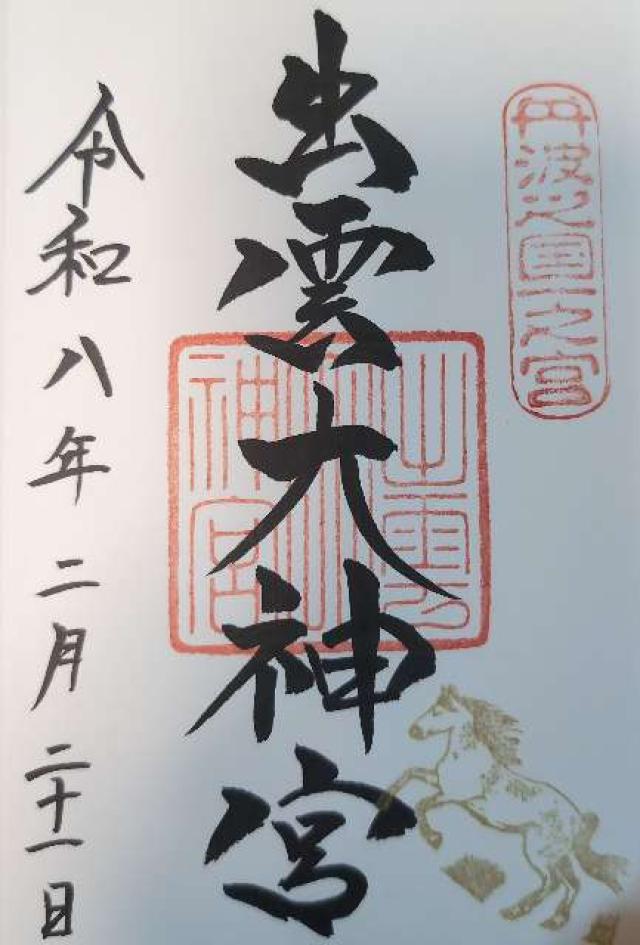 丹波之國一之宮
出雲大神宮
出雲大神宮
令和八年二月二十一日